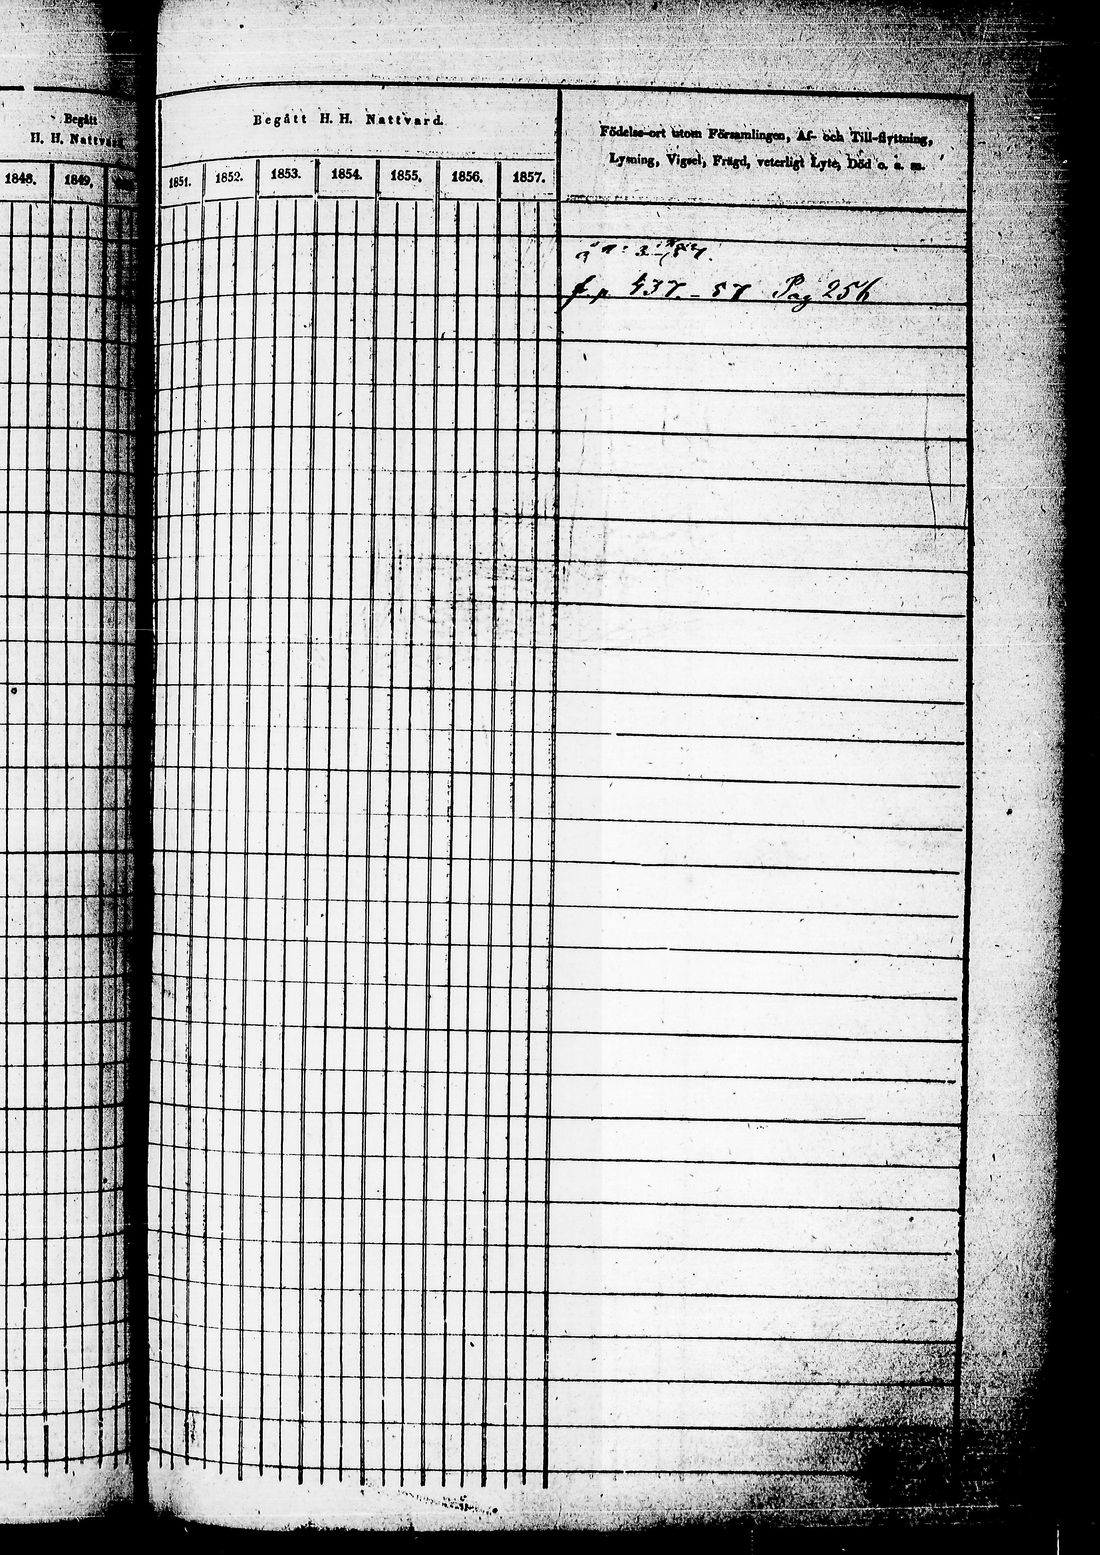 Begått
H. H. Nattvard
1848. 1849.
Begått H. H. Nattvard.
1851. 1852. 1853. 1854. 1855. 1856. 1857.
Födelse-ort utom Församlingen, Af- och Till-flyttning,
Lysning, Vigsel, Frägd, veterligt Lyte, Död o. a. m.
57 Pag 256